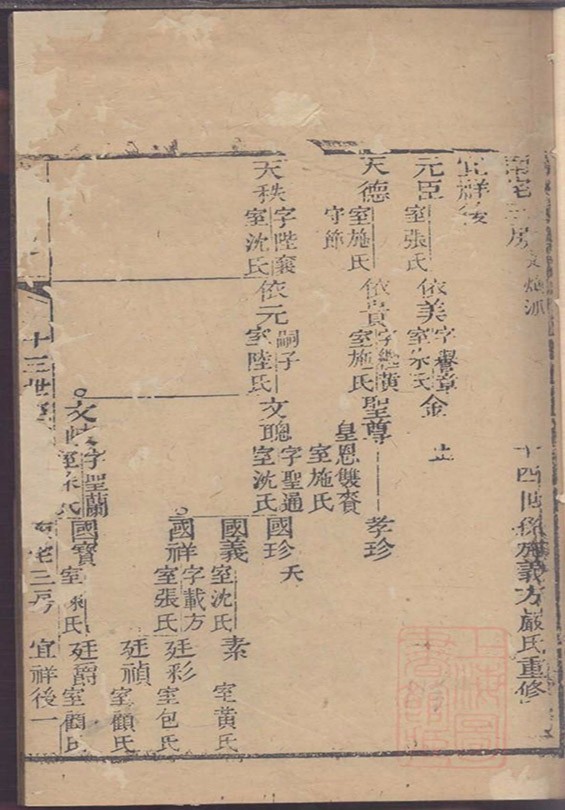 三房
十四世孫義方嚴氏重修
宜祥後
元臣 室張氏
依美 字譽章
金 止
天德 室施氏 守節
依貴 室施氏
聖尊 皇恩雙賚 室施氏
孝珍
天秩 字陛襄 室沈氏
依元 嗣子 室陸氏
文聰 字聖通 室沈氏
國珍 夭
國義 室沈氏
素 室黃氏
國祥 字載方 室張氏
廷彩 室包氏
廷禎 室顧氏
文 字聖蘭
國寶 室 氏
廷爵 室顧氏
十三世
宅三房
宜祥後一